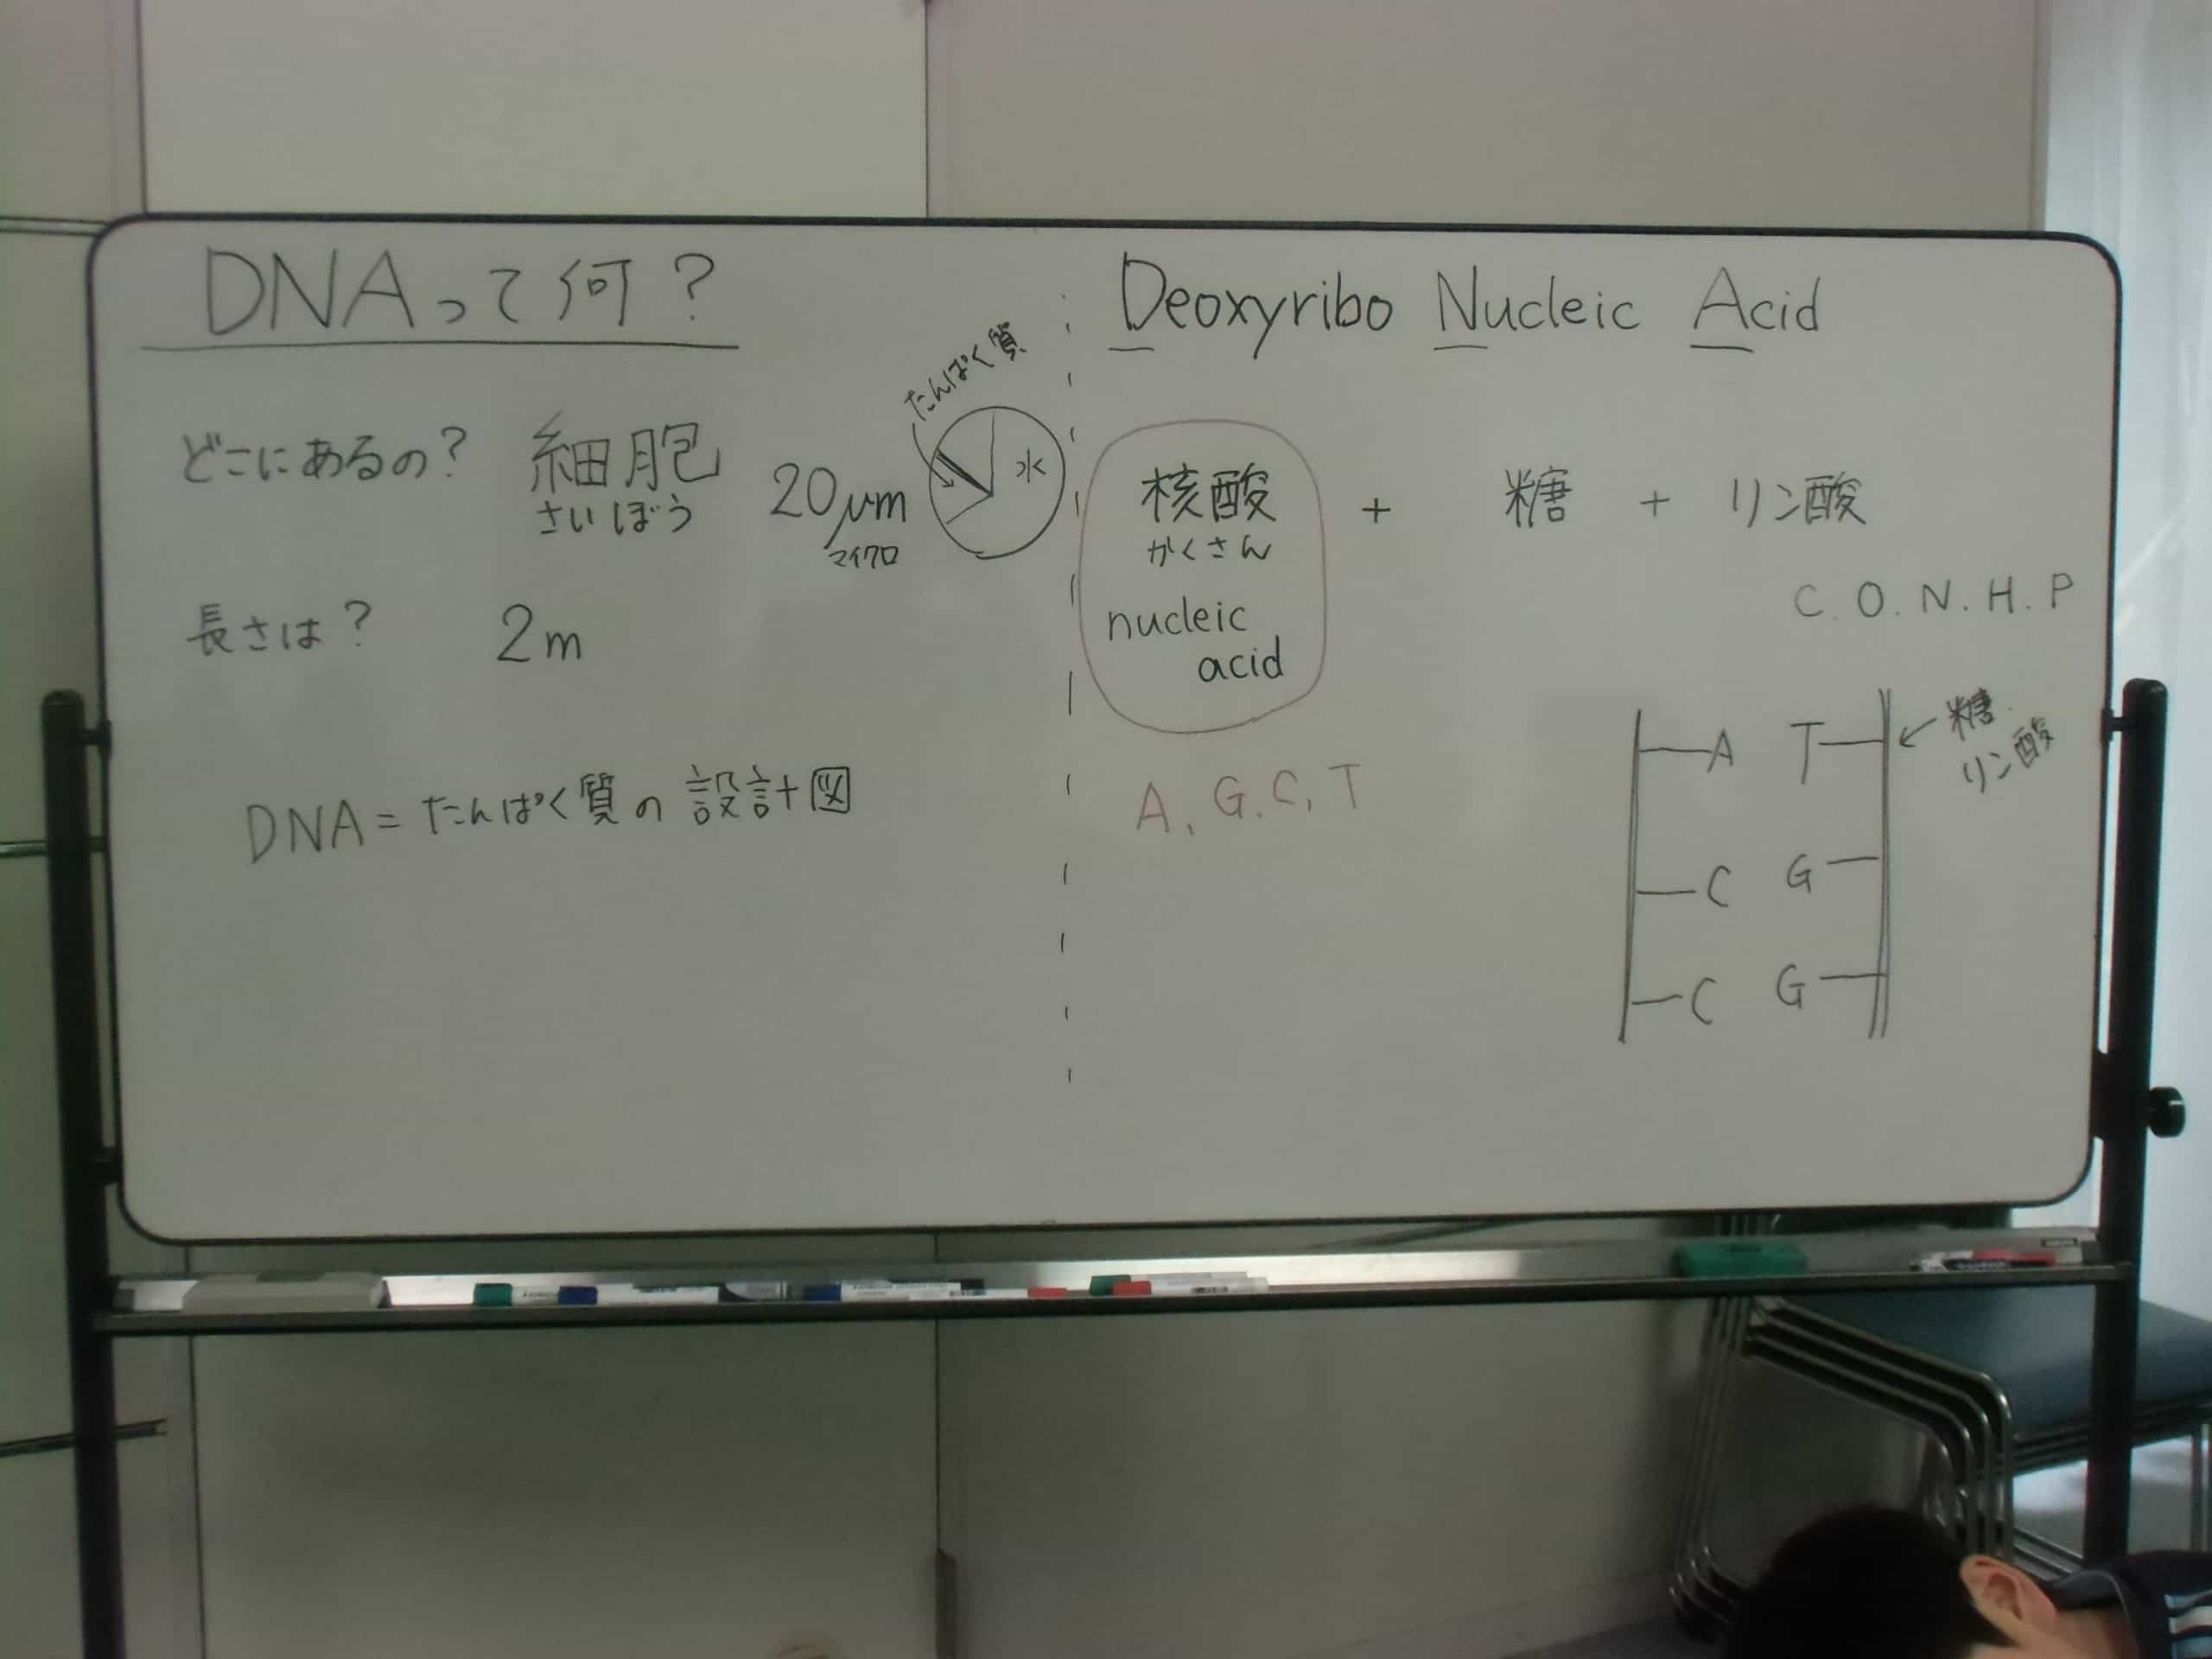 DNAって何？
どこにあるの？ 細胞 20μm
さいぼう マイクロ
たんぱく質
水
長さは？ 2m
DNA=たんぱく質の設計図
Deoxyribo Nucleic Acid
核酸 + 糖 + リン酸
かくさん
nucleic
acid
C.O.N.H.P
A, G.C, T
A T
C G
C G
←糖
リン酸